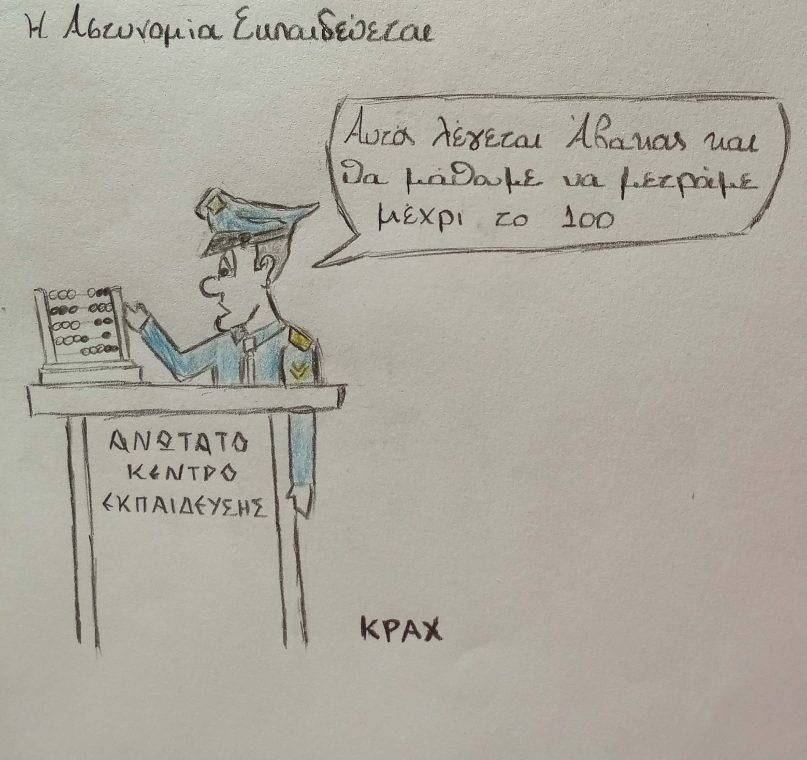 Η Αστυνομία Εκπαιδεύεται
Αυτό λέγεται Άβακας και
θα μάθαμε να μετράμε
μέχρι το 100
ΑΝΩΤΑΤΟ
ΚΕΝΤΡΟ
ΕΚΠΑΙΔΕΥΣΗΣ
ΚΡΑΧ